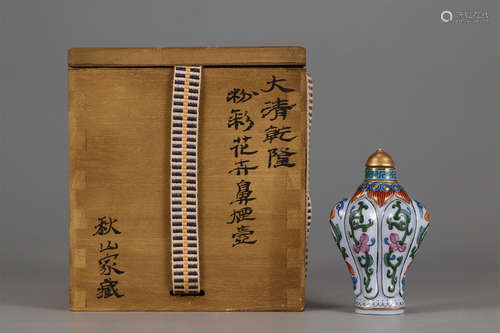 大清乾隆
粉彩花卉鼻煙壺
秋山家藏